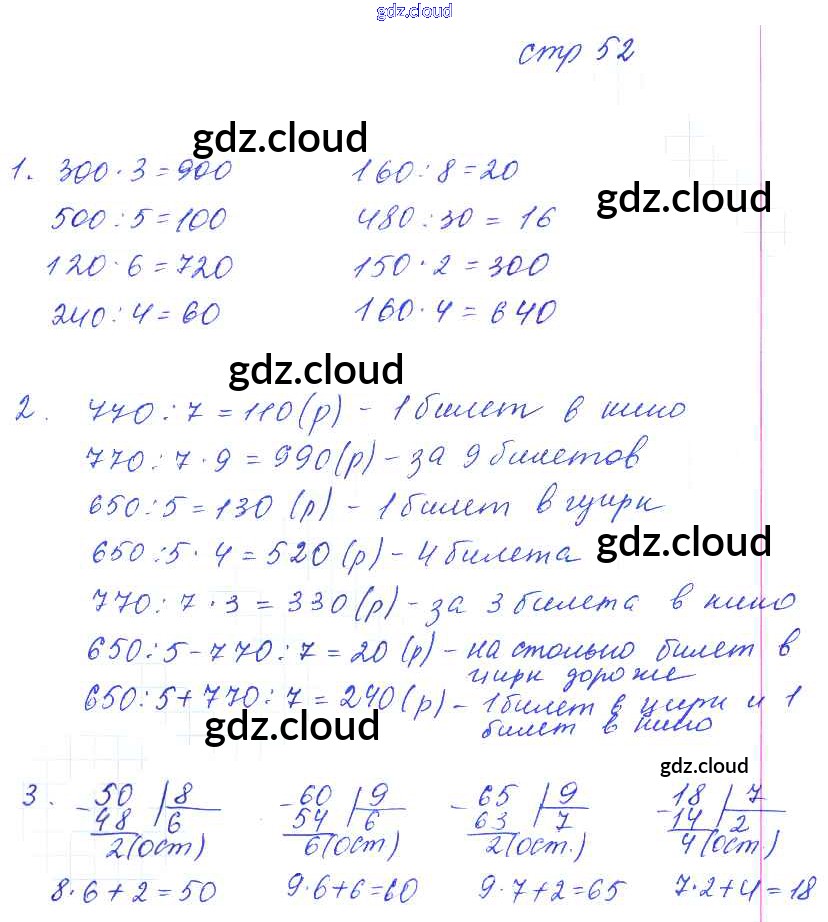 gdz.cloud
стр 52
gdz.cloud
1. 300·3=900 160:8=20
gdz.cloud
500:5=100 480:30=16
120·6=720 150·2=300
240:4=60 160·4=640
gdz.cloud
2. 770:7=110(р) - 1 билет в кино
770:7·9=990(р) - за 9 билетов
650:5=130 (р) - 1 билет в цирк
650:5·4=520(р) - 4 билета
gdz.cloud
770:7·3=330(р) - за 3 билета в кино
650:5-770:7=20(р) - на столько билет в
цирк дороже
650:5+770:7=240(р) - 1 билет в цирк и 1
билет в кино
gdz.cloud
gdz.cloud
3. -50 |8 -60 |9 -65 |9 -18 |7
48 6 54 6 63 7 14 2
2(ост) 6(ост) 2(ост.) 4(ост.)
8·6+2=50 9·6+6=60 9·7+2=65 7·2+4=18